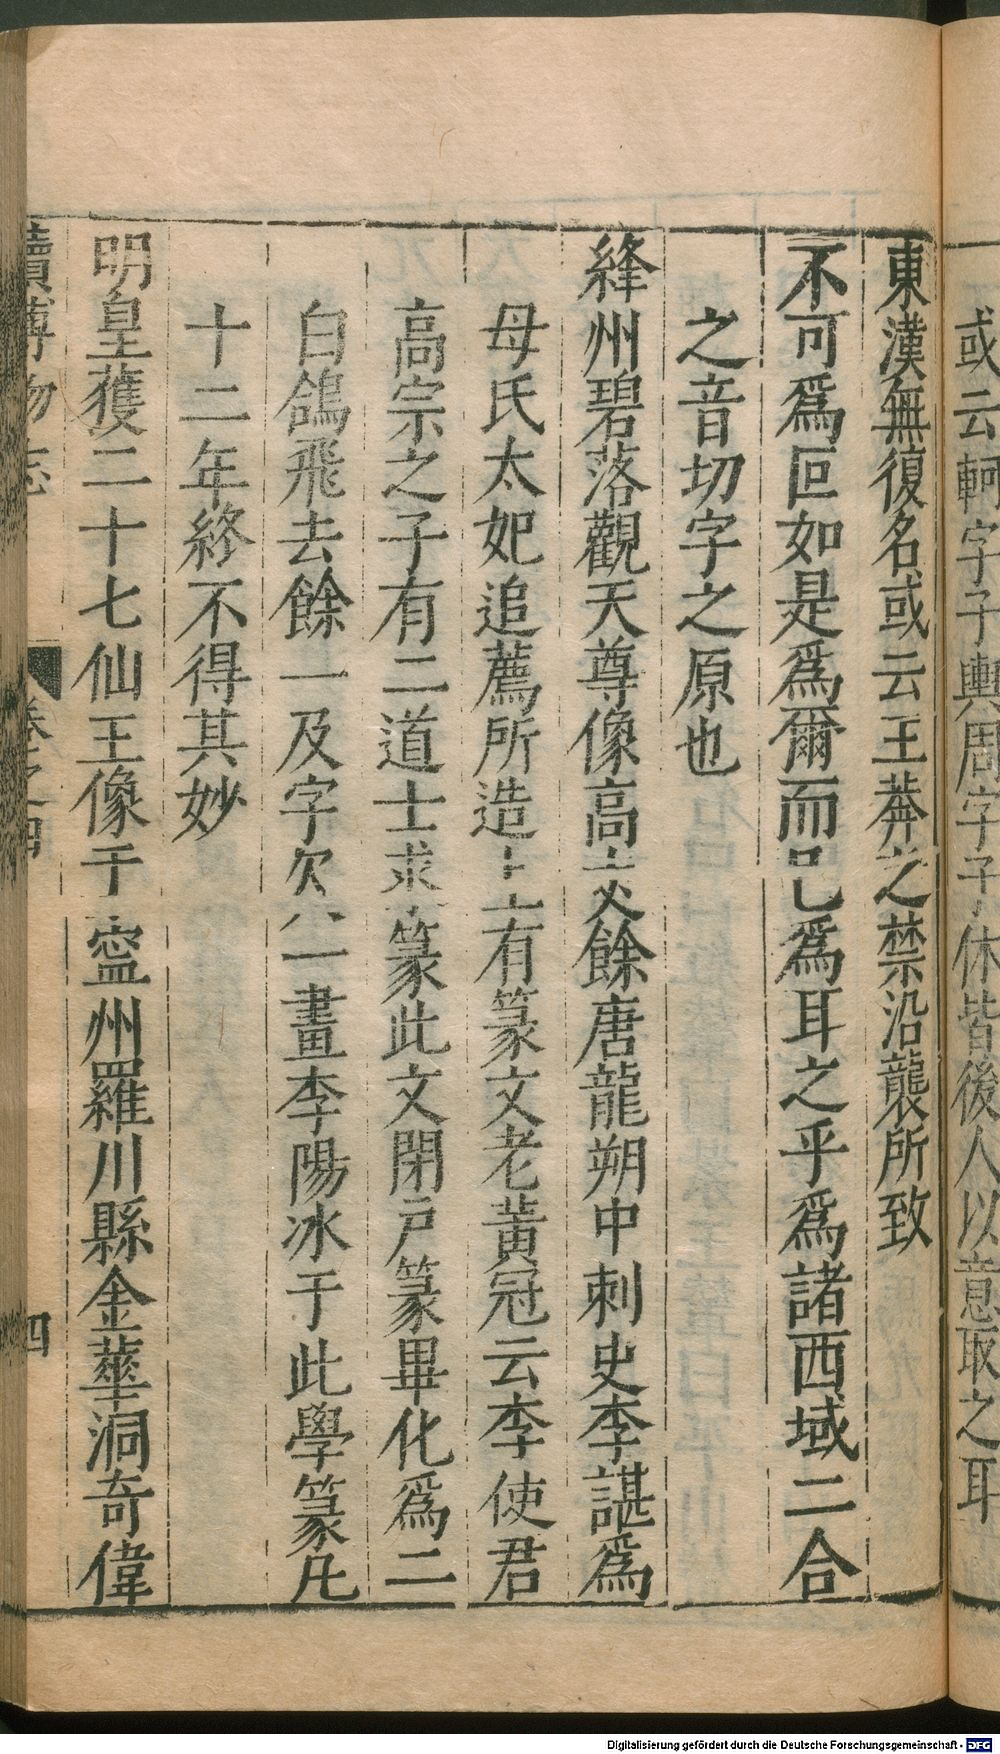 或云軻字子輿周字子休皆後人以意取之耳
東漢無復名或云王莽之禁沿襲所致
不可爲叵如是爲爾而已爲耳之乎爲諸西域二合
之音切字之原也
絳州碧落觀天尊像高丈餘唐龍朔中刺史李諶爲
母氏太妃追薦所造上有篆文老黃冠云李使君
高宗之子有二道士求篆此文閉戸篆畢化爲二
白鴿飛去餘一及字欠一畫李陽冰于此學篆凡
十二年終不得其妙
明皇獲二十七仙王像于寧州羅川縣金華洞奇偉
續博物志 卷之四 四
Digitalisierung gefördert durch die Deutsche Forschungsgemeinschaft - DFG